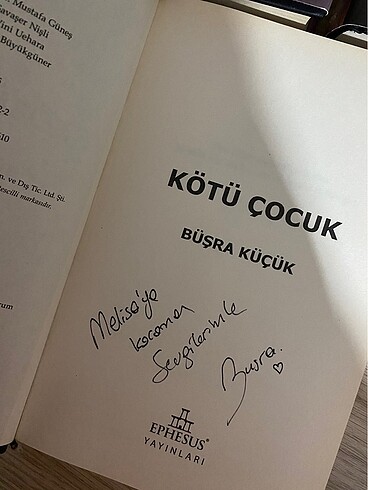 Mustafa Güneş
avaşer Nişli
Yini Uehara
Büyükgüner
2-2
510
n. ve Dış Tic. Ltd. Şti.
escilli markasıdır.
KÖTÜ ÇOCUK
BÜŞRA KÜÇÜK
Melisa'ya
kocaman
Sevgilerimle
Büşra.
EPHESUS®
YAYINLARI